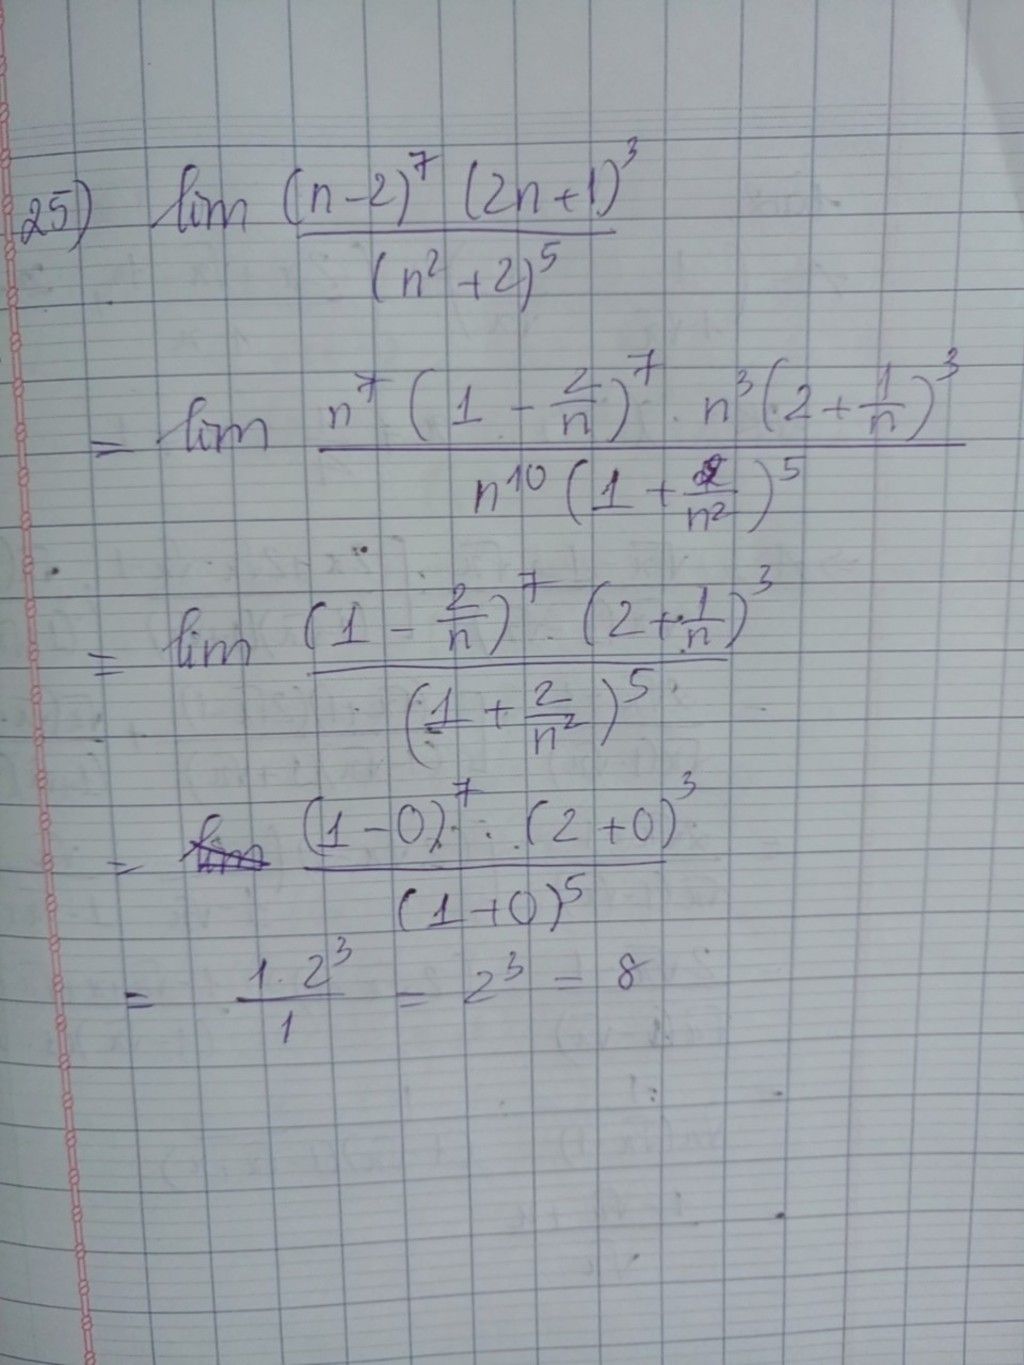 25) lim (n-2)^7 (2n+1)^3 / (n^2+2)^5
= lim n^7 (1 - 2/n)^7 . n^3 (2 + 1/n)^3 / n^10 (1 + 2/n^2)^5
= lim (1 - 2/n)^7 . (2 + 1/n)^3 / (1 + 2/n^2)^5
= (1-0)^7 . (2+0)^3 / (1+0)^5
= 1.2^3 / 1 = 2^3 = 8